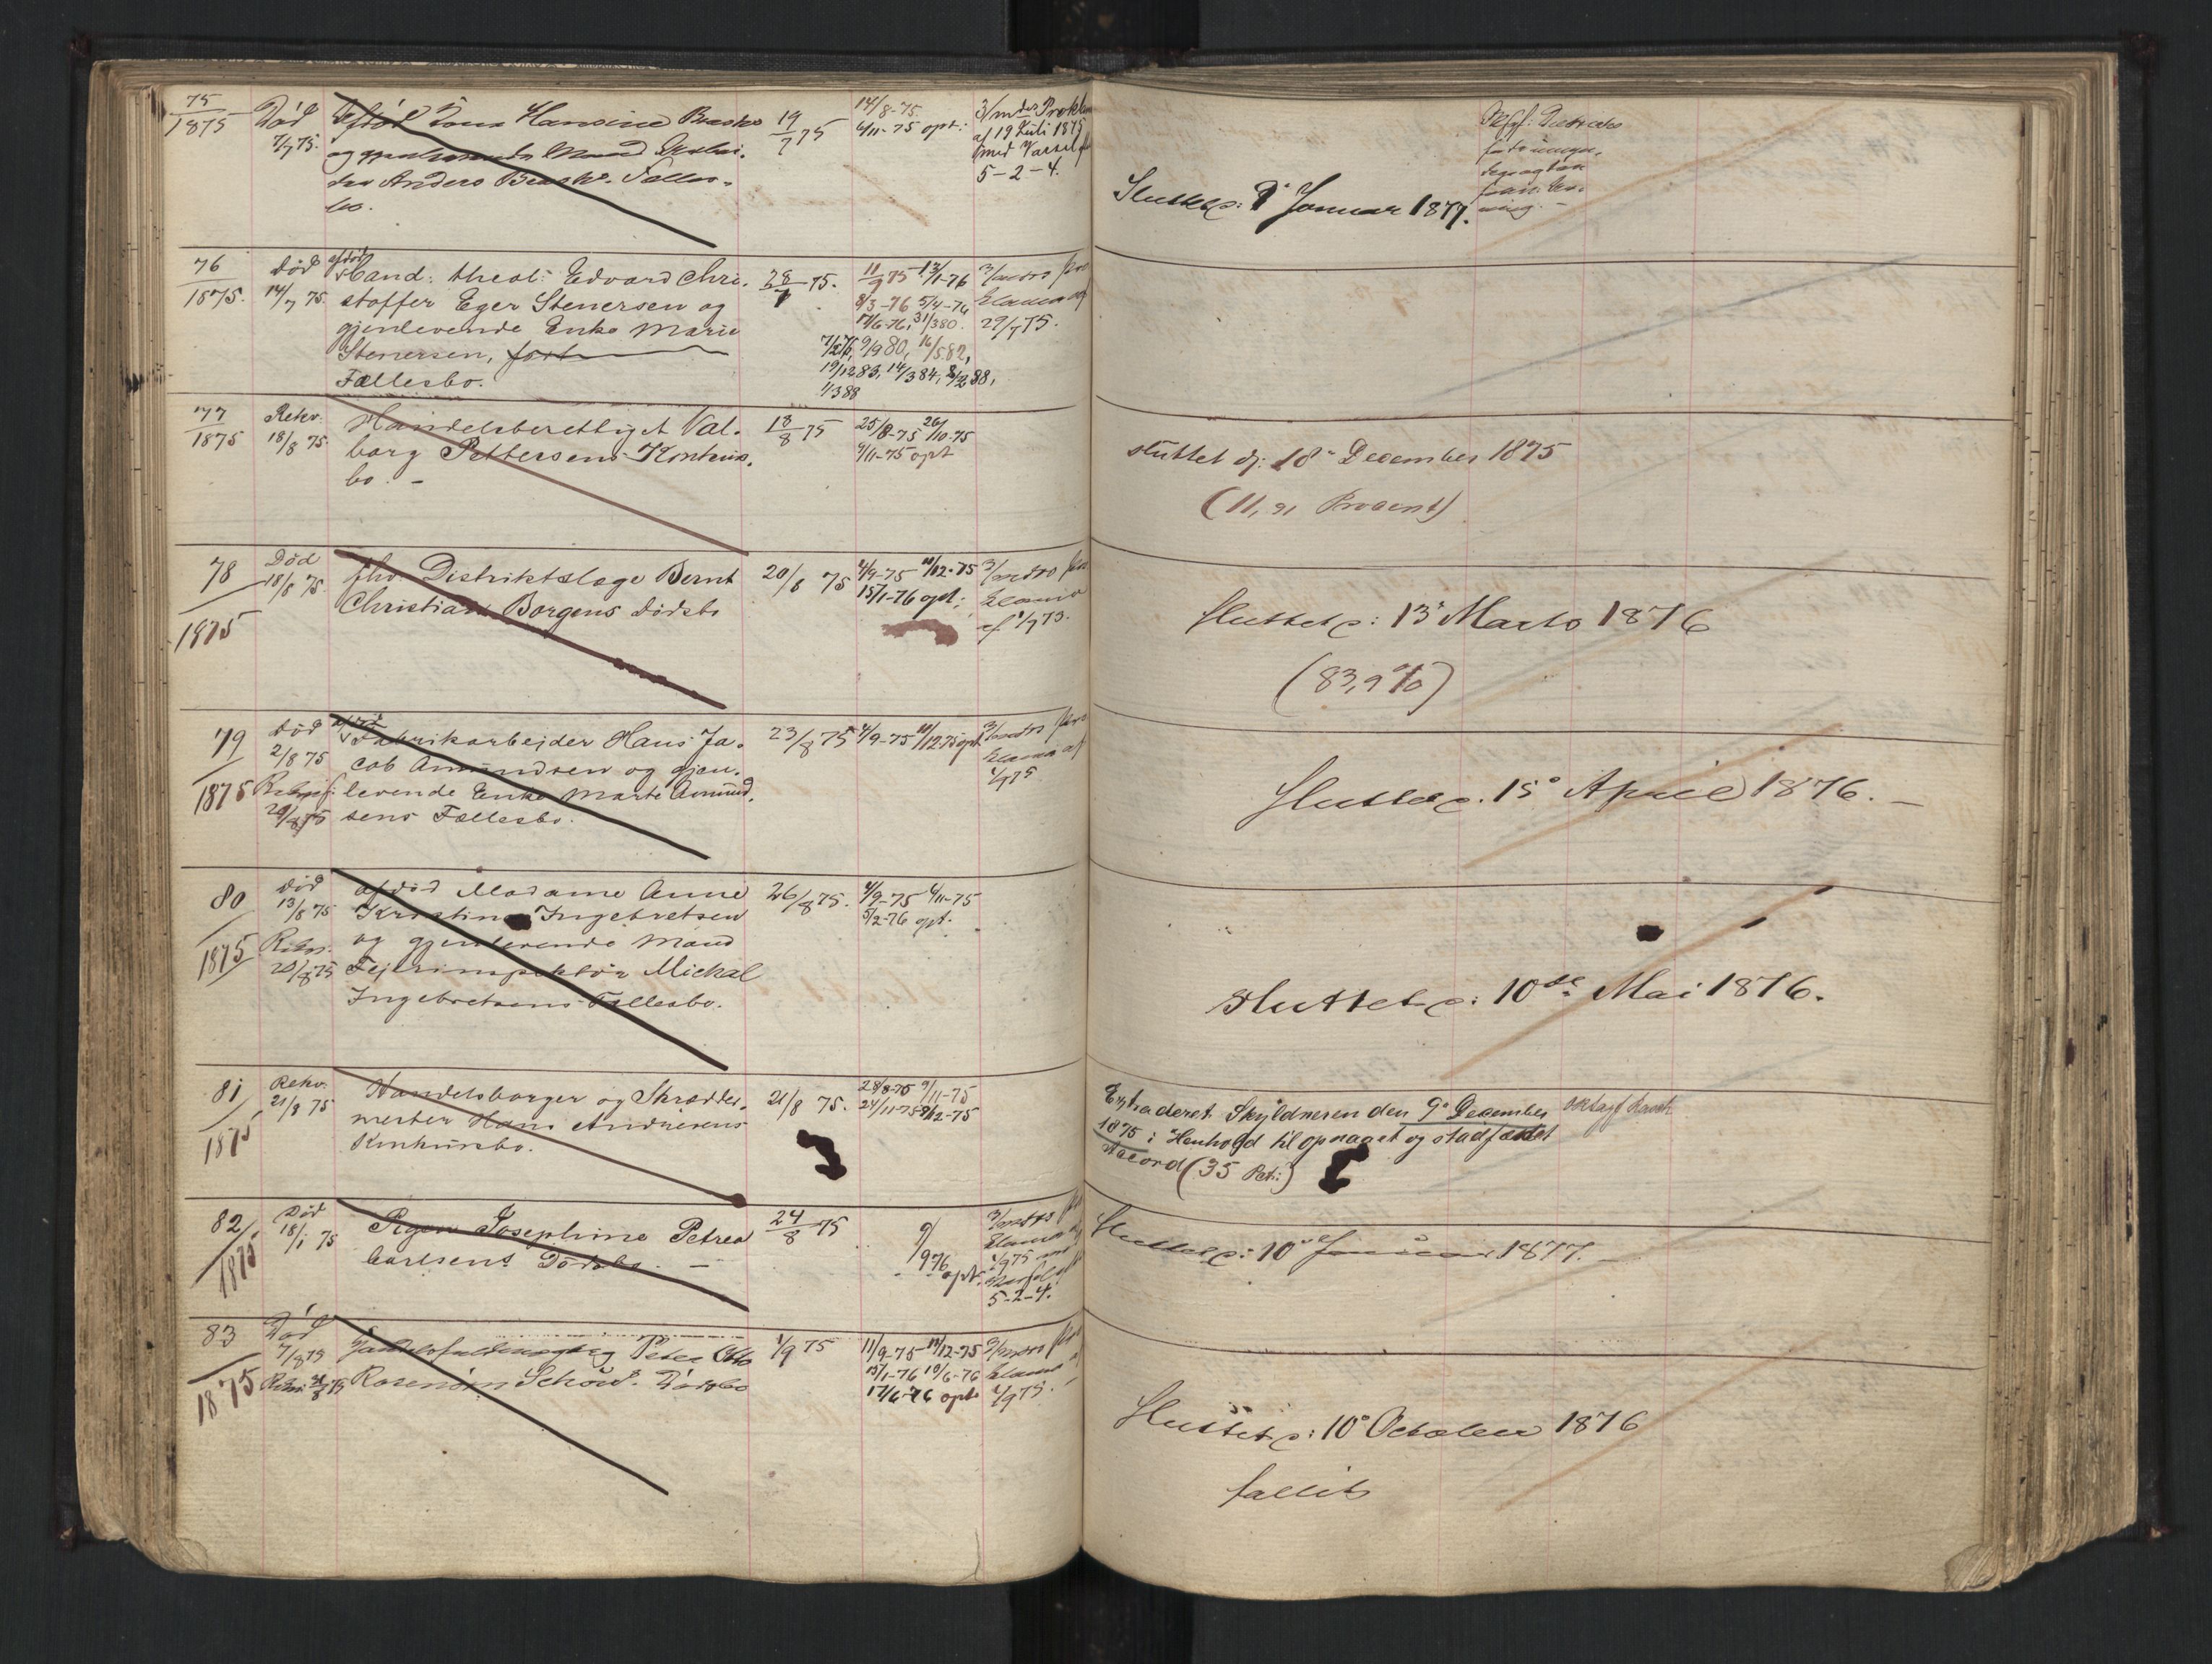 75
1875
Død
7/7 75.
Afdød Kone Hansine Braske
og gjenlevende Mand
Anders Braske. Fælles-
bo.
19
7 75
14/8-75.
4/11-75 opt:
3/mdrs Prokla
af 19 Juli 1875
med Varsel
5-2-4.
Sluttet d: 9de Januar 1877.
76
1875.
Død
14/7 75.
afdød
Cand: theol: Edvard Chri-
stoffer Eger Stenersen og
gjenlevende Enke Marie
Stenersen,
Fællesbo.
28
7 75.
11/9 75 13/1-76
8/3-76 5/4-76
17/6-76, 31/3 80.
9/9 80, 16/5 82,
19/12 83, 14/3 84, 2/2 88,
1/3 88
3/mdrs pro
klama af
29/7 75.
77
1875
Rekv.
18/8 75.
Handelsberettiget Val-
borg Pettersens Konkurs-
bo. -
18
8 75
25/8-75 26/10-75
9/11-75 opt
sluttet d: 18de December 1875
(11,91 Procent)
78
1875
Død
18/8 75.
fhv. Distriktslæge Bernt
Christian Borgens Dødsbo
20/8 75
4/9-75 10/12-75
15/1-76 opt:
3/mdrs pro
klama
af 1/9 75.
Sluttet d: 13de Marts 1876
(83,9 %)
79
1875
Død
2/8 75
Rekv:
20/8 75
afdød
Fabrikarbeider Hans Ja-
cob Amundsen og gjen-
levende Enke Marte Amund-
sens Fællesbo.
23/8 75
4/9-75 10/12 75 opt
3/mdrs pro
klama af
1/9 75
Sluttet d. 15de April 1876. -
80
1875
Død
13/8 75
Rekv.
20/8 75
afdød Madame Anne
Kristine Ingebretsen
og gjenlevende Mand
Feierinspektør Michal
Ingebretsens Fællesbo.
26/8 75.
4/9-75 4/11-75
5/2-76 opt.
Sluttet d: 10de Mai 1876.
81
1875
Rekv.
21/8 75
Handelsborger og Skrædder-
mester Hans Andresens
Konkursbo.
21/8 75.
28/8-75 9/11-75
24/11-75 8/12-75
Extraderet Skyldneren den 9de December
1875 i Henhold til opnaaet og stadfæstet
Accord (35 Pct:)
82
1875
Død
18/1 75
Pigen Josephine Petrea
Carlsens Dødsbo. -
24
8 75
9/9 76
opt.
3/mdrs pro
klama af
1/9 75 med
Varsel
5-2-4.
Sluttet d: 10de Januar 1877. -
83
1875
Død
7/8 75
Rekv: 21/8 75
Peter Otto
Rosenørn Schow. Dødsbo
1/9 75
11/9-75 10/12-75
15/1-76 10/6-76
17/6-76 opt
3/mdrs pro
klama af
1/9 75. -
Sluttet d: 10de October 1876
fallit